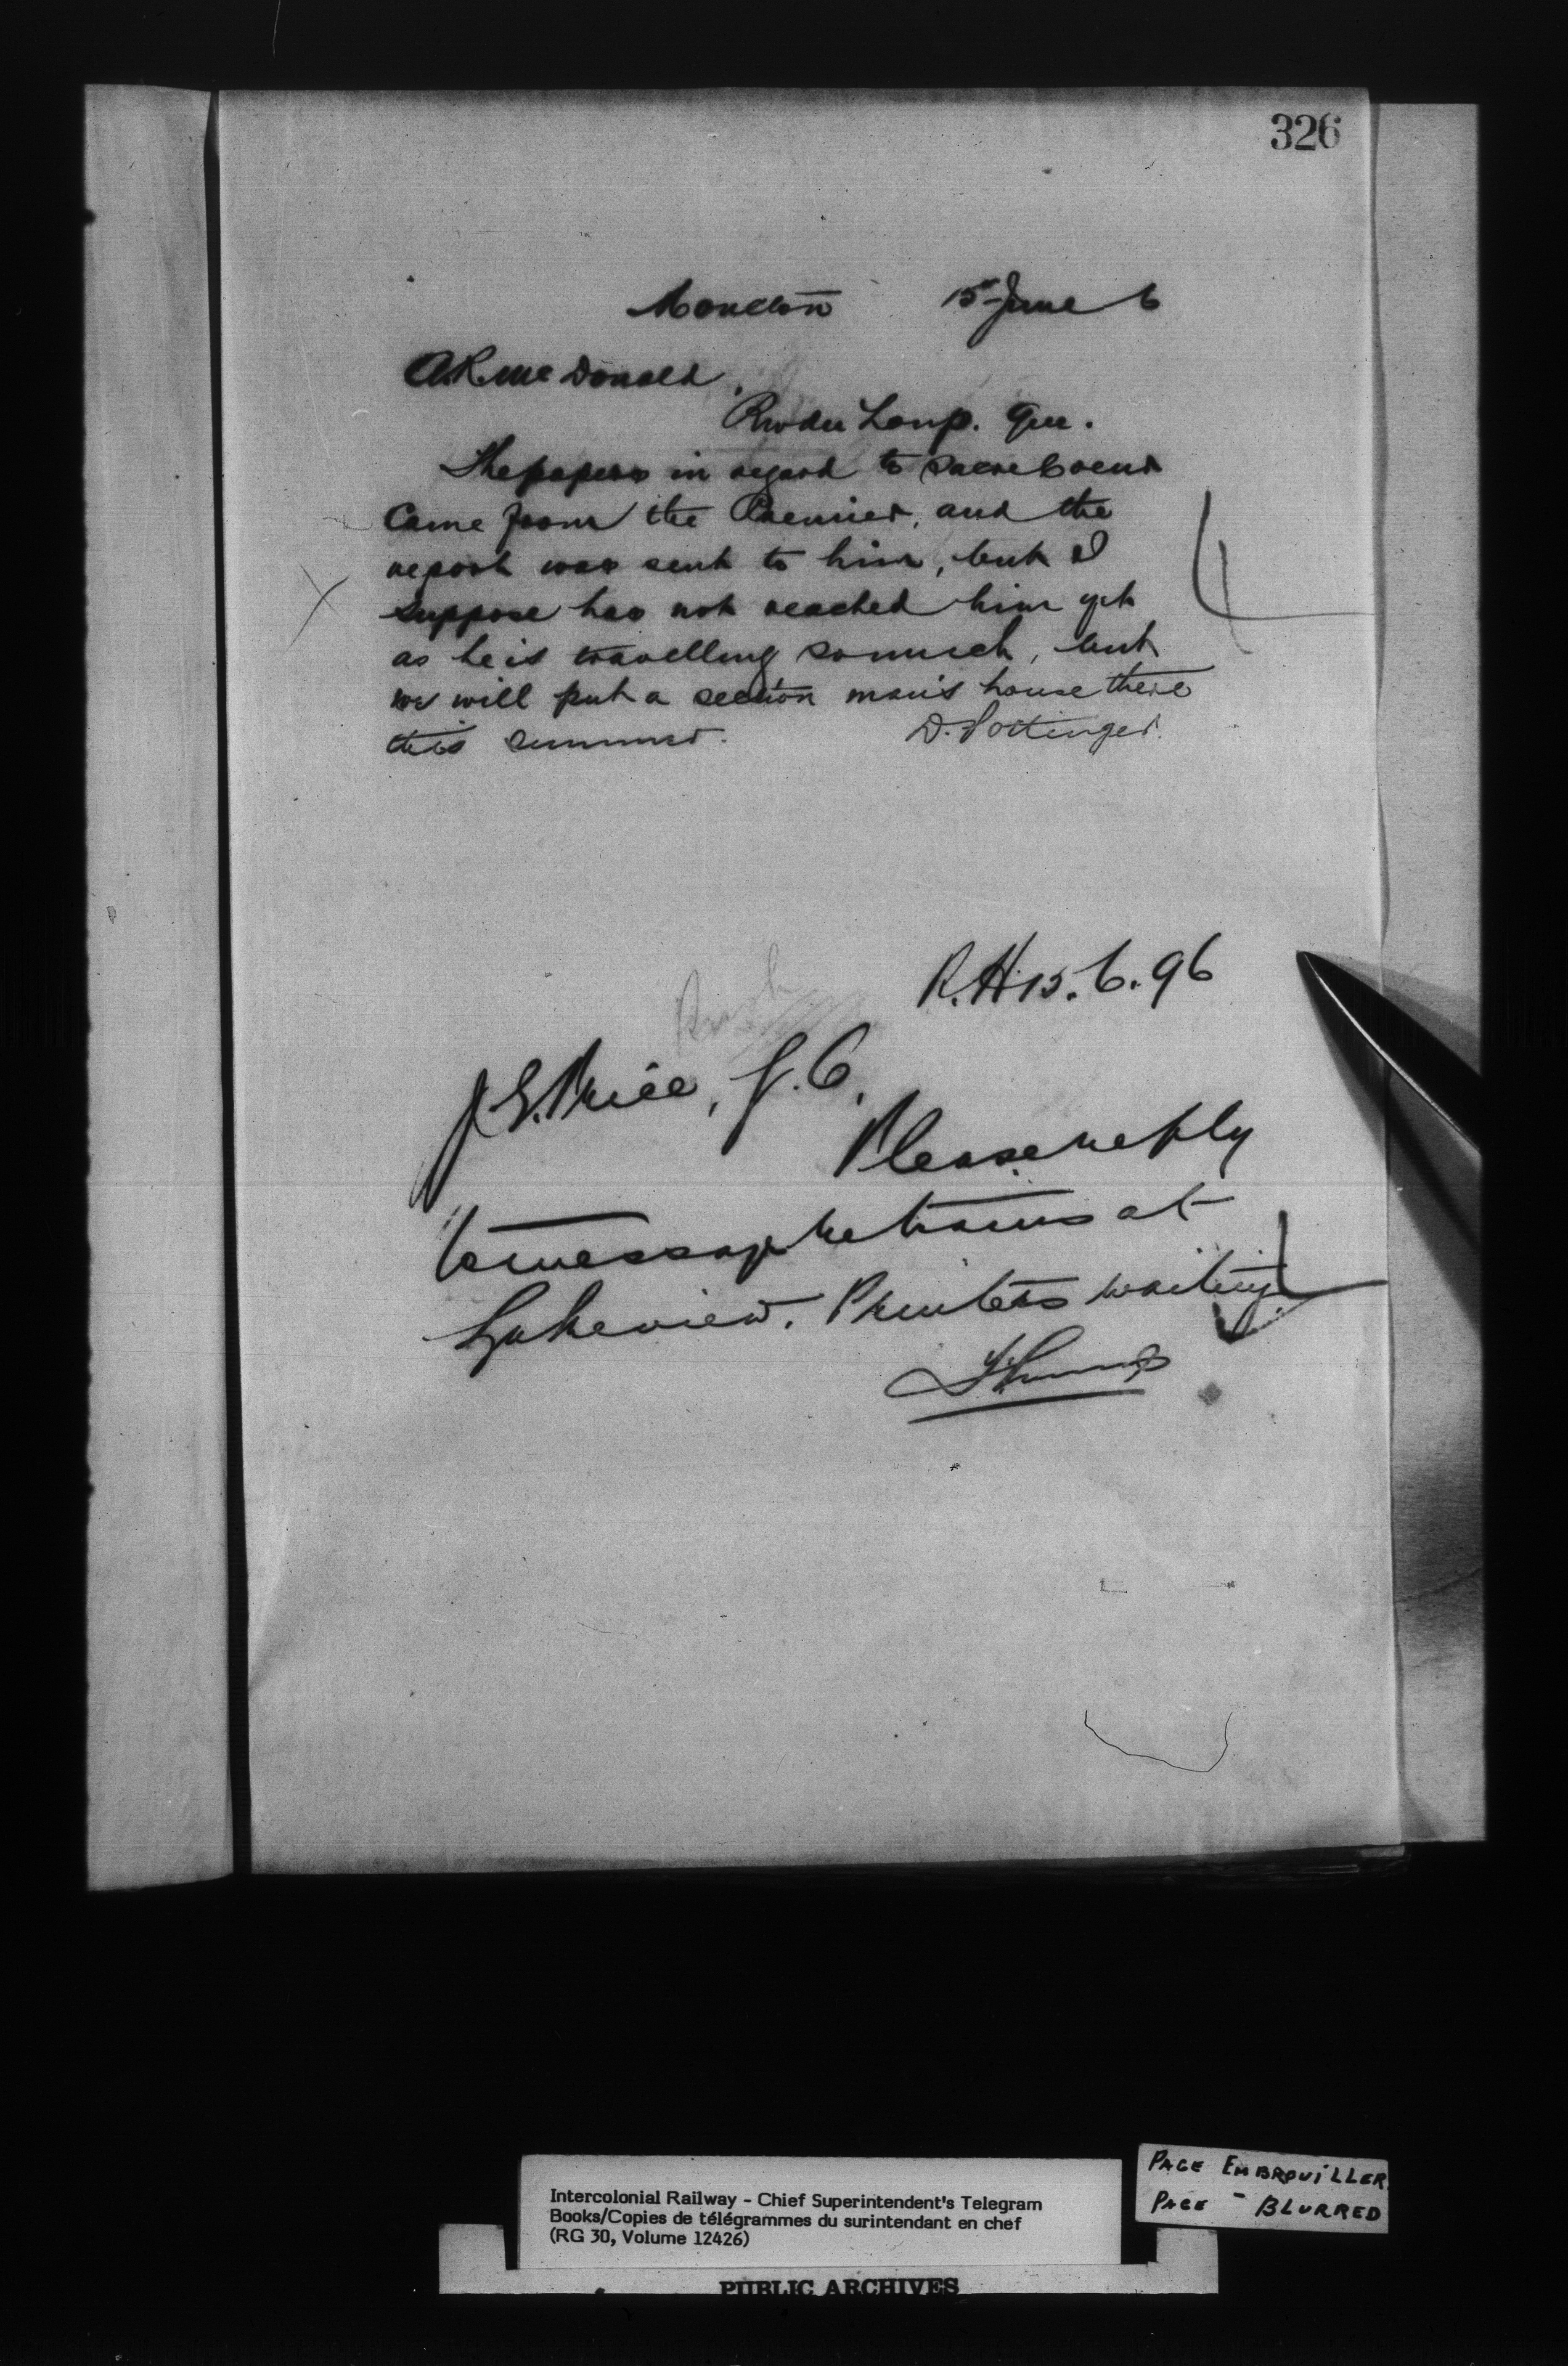 326
Moncton 15 June 6
A.R. McDonald,
Riv du Loup. Que.
The papers in regard to Sacre Coeur
Came from the Premier, and the
report was sent to him, but I
suppose has not reached him yet
as he is travelling so much, but
we will put a section man's house there
this summer. D. Pottinger.
R. H 15. 6. 96
Rush
J. E. Price, J. C.
Please reply
to message re trains at
Lakeview. Printers waiting
Intercolonial Railway - Chief Superintendent's Telegram
Books/Copies de télégrammes du surintendant en chef
(RG 30, Volume 12426)
PAGE EMBROUILLER
PAGE - BLURRED
PUBLIC ARCHIVES